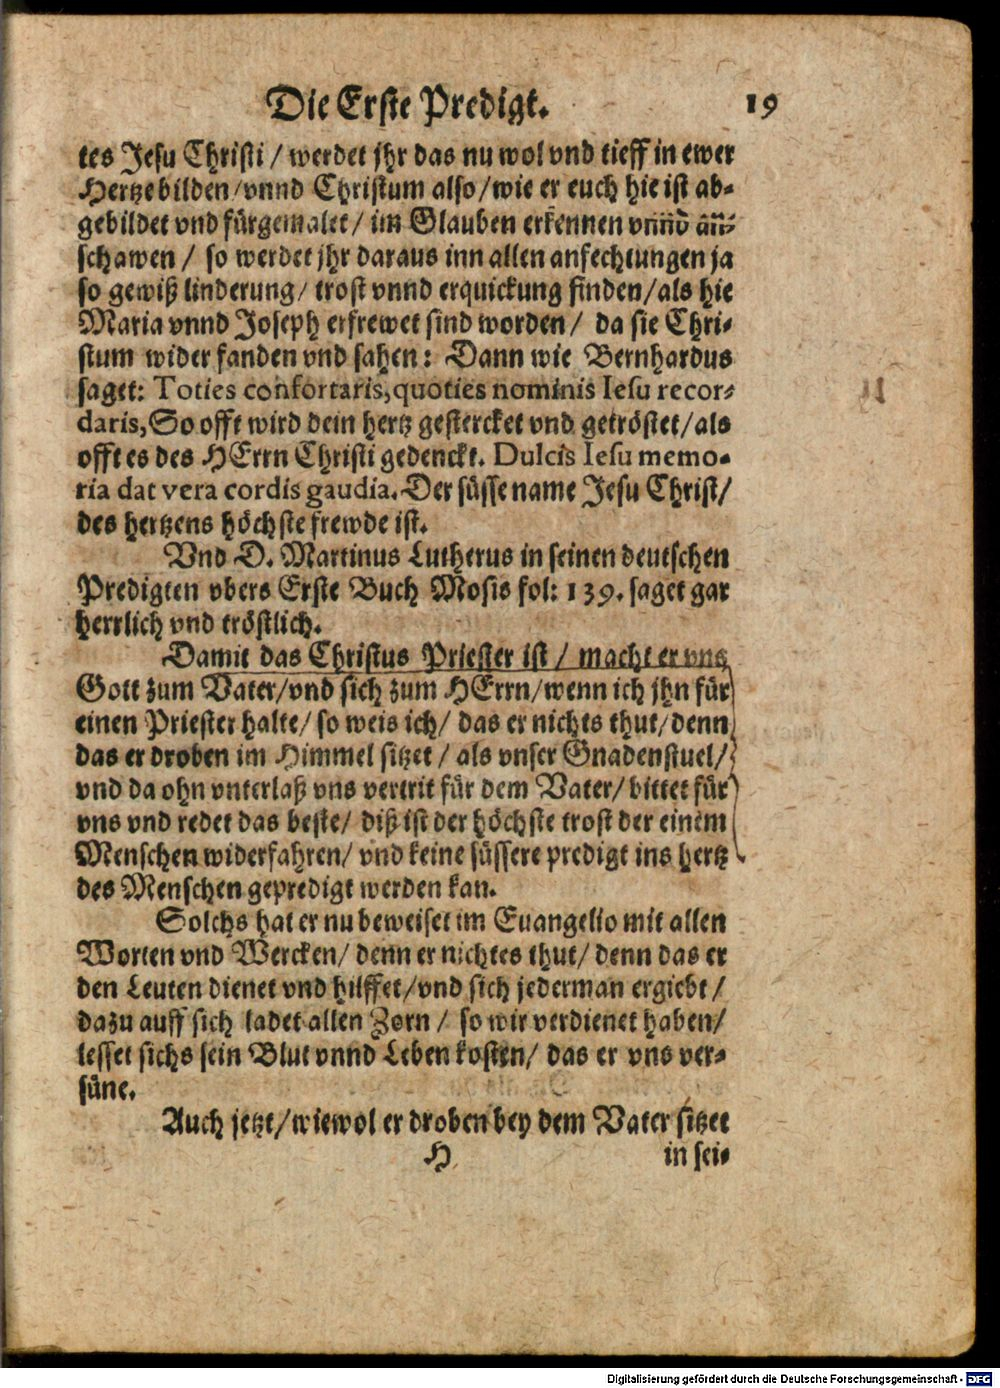 Die Erste Predigt. 19
tes Jesu Christi / werdet jhr das nu wol vnd tieff in ewer
Hertze bilden / vnnd Christum also / wie er euch hie ist ab-
gebildet vnd fürgemalet / im Glauben erkennen vnnd an-
schawen / so werdet jhr daraus inn allen anfechtungen ja
so gewiß linderung / trost vnnd erquickung finden / als hie
Maria vnnd Joseph erfrewet sind worden / da sie Chri-
stum wider fanden vnd sahen: Dann wie Bernhardus
saget: Toties confortaris, quoties nominis Iesu recor-
daris, So offt wird dein hertz gestercket vnd getröstet / als
offt es des HErrn Christi gedenckt. Dulcis Iesu memo-
ria dat vera cordis gaudia. Der süsse name Jesu Christ /
des hertzens höchste frewde ist.
Vnd D. Martinus Lutherus in seinen deutschen
Predigten vbers Erste Buch Mosis fol: 139. saget gar
herrlich vnd tröstlich.
Damit das Christus Priester ist / macht er vns
Gott zum Vater / vnd sich zum HErrn / wenn ich jhn für
einen Priester halte / so weis ich / das er nichts thut / denn
das er droben im Himmel sitzet / als vnser Gnadenstuel /
vnd da ohn vnterlaß vns vertrit für dem Vater / bittet für
vns vnd redet das beste / diß ist der höchste trost der einem
Menschen widerfahren / vnd keine süssere predigt ins hertz
des Menschen gepredigt werden kan.
Solchs hat er nu beweiset im Euangelio mit allen
Worten vnd Wercken / denn er nichtes thut / denn das er
den Leuten dienet vnd hilffet / vnd sich jederman ergiebt /
dazu auff sich ladet allen Zorn / so wir verdienet haben /
lesset sichs sein Blut vnnd Leben kosten / das er vns ver-
süne.
Auch jetzt / wiewol er droben bey dem Vater sitzet
H in sei-
Digitalisierung gefördert durch die Deutsche Forschungsgemeinschaft - DFG